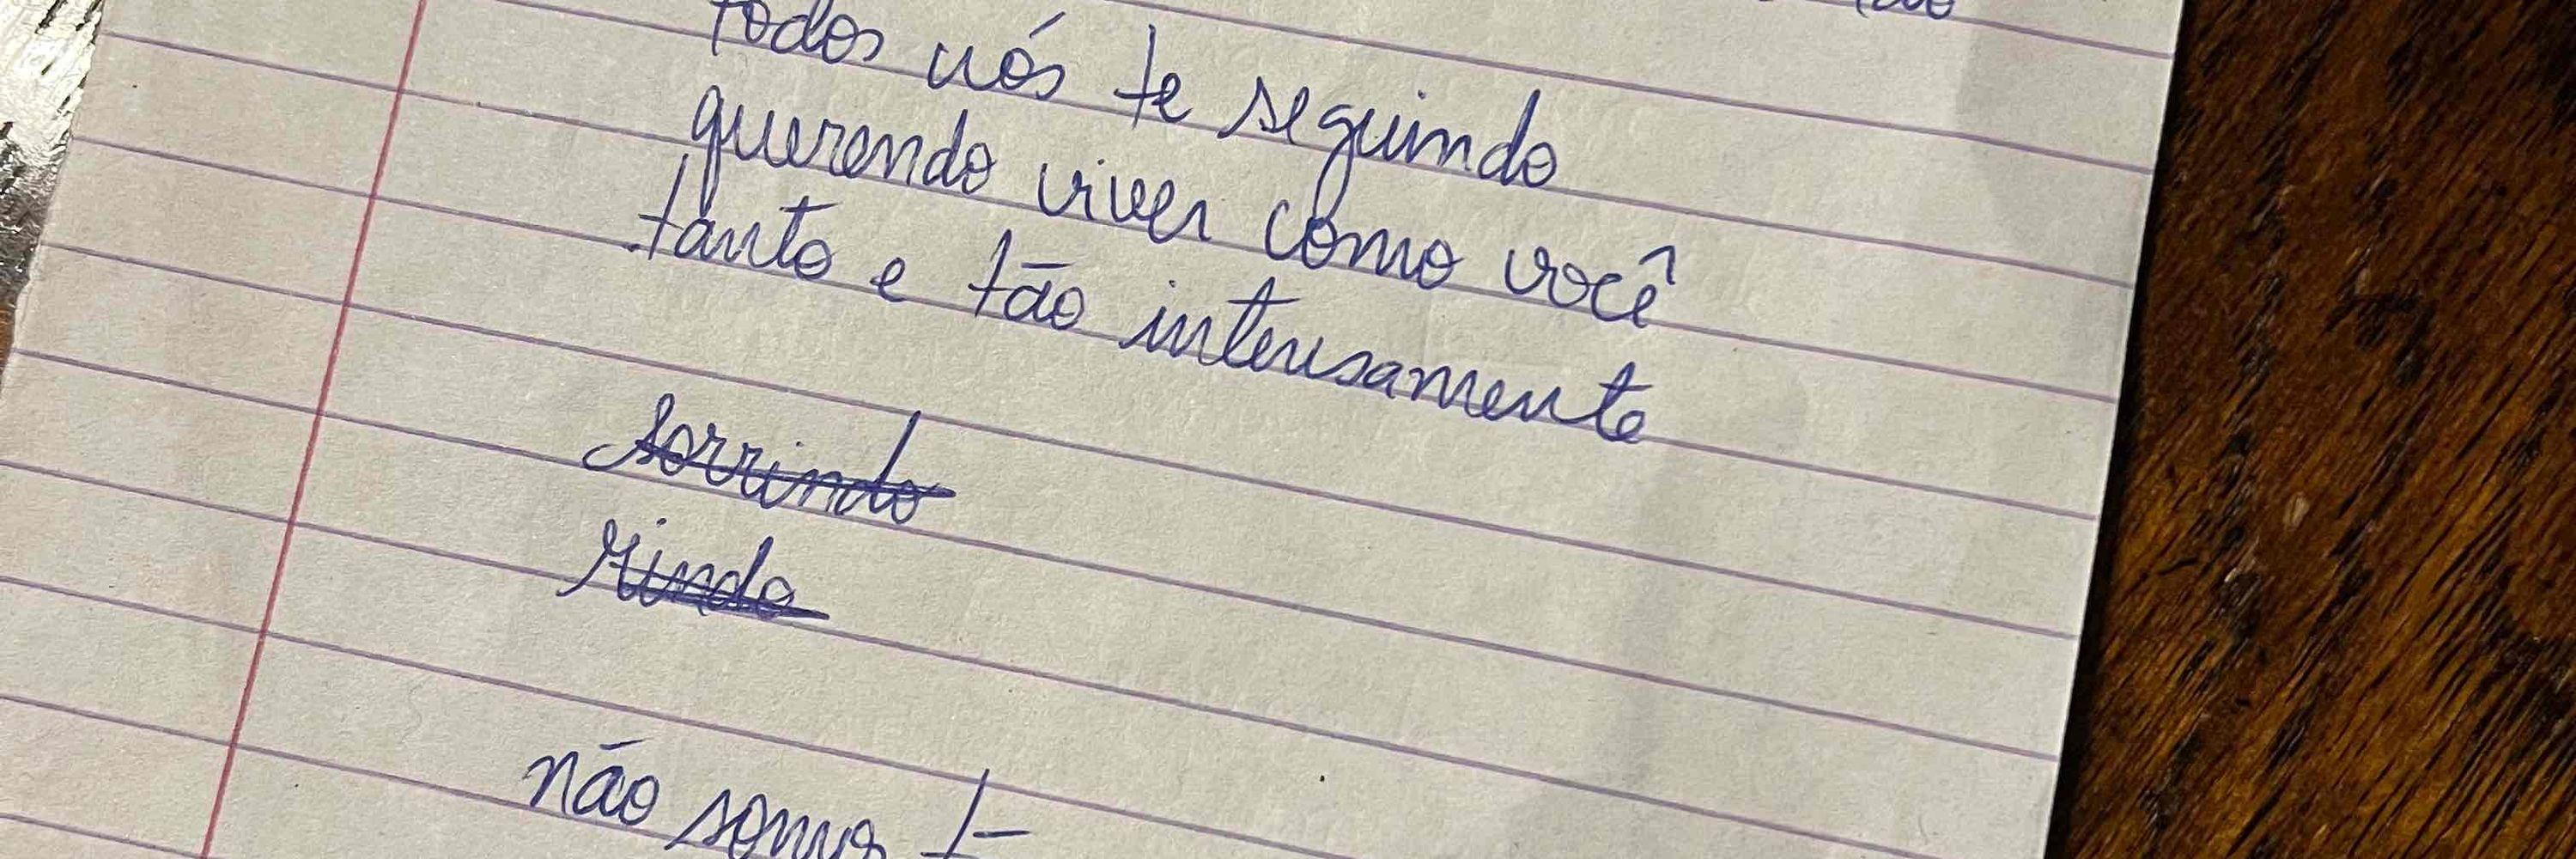 todos nós te seguindo
querendo viver como você
tanto e tão intensamente
sorrindo
rindo
não somos